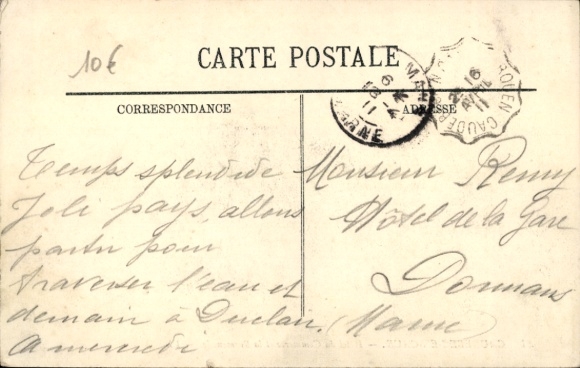 10€
CARTE POSTALE
CORRESPONDANCE
ADRESSE
ROUEN CAUDEB
16
AVRIL
11
MARNE
Temps splendide
Joli pays, allons
partir pour
traverser l'eau et
demain à Duclair,
A mercredi
Monsieur Remy
Hôtel de la Gare
Dormans
(Marne)